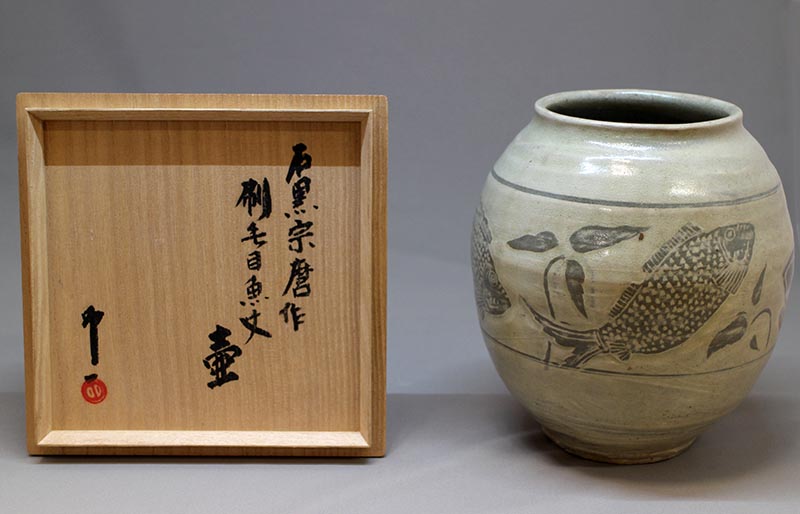 石黒宗麿作
刷毛目魚文
壷
卯一